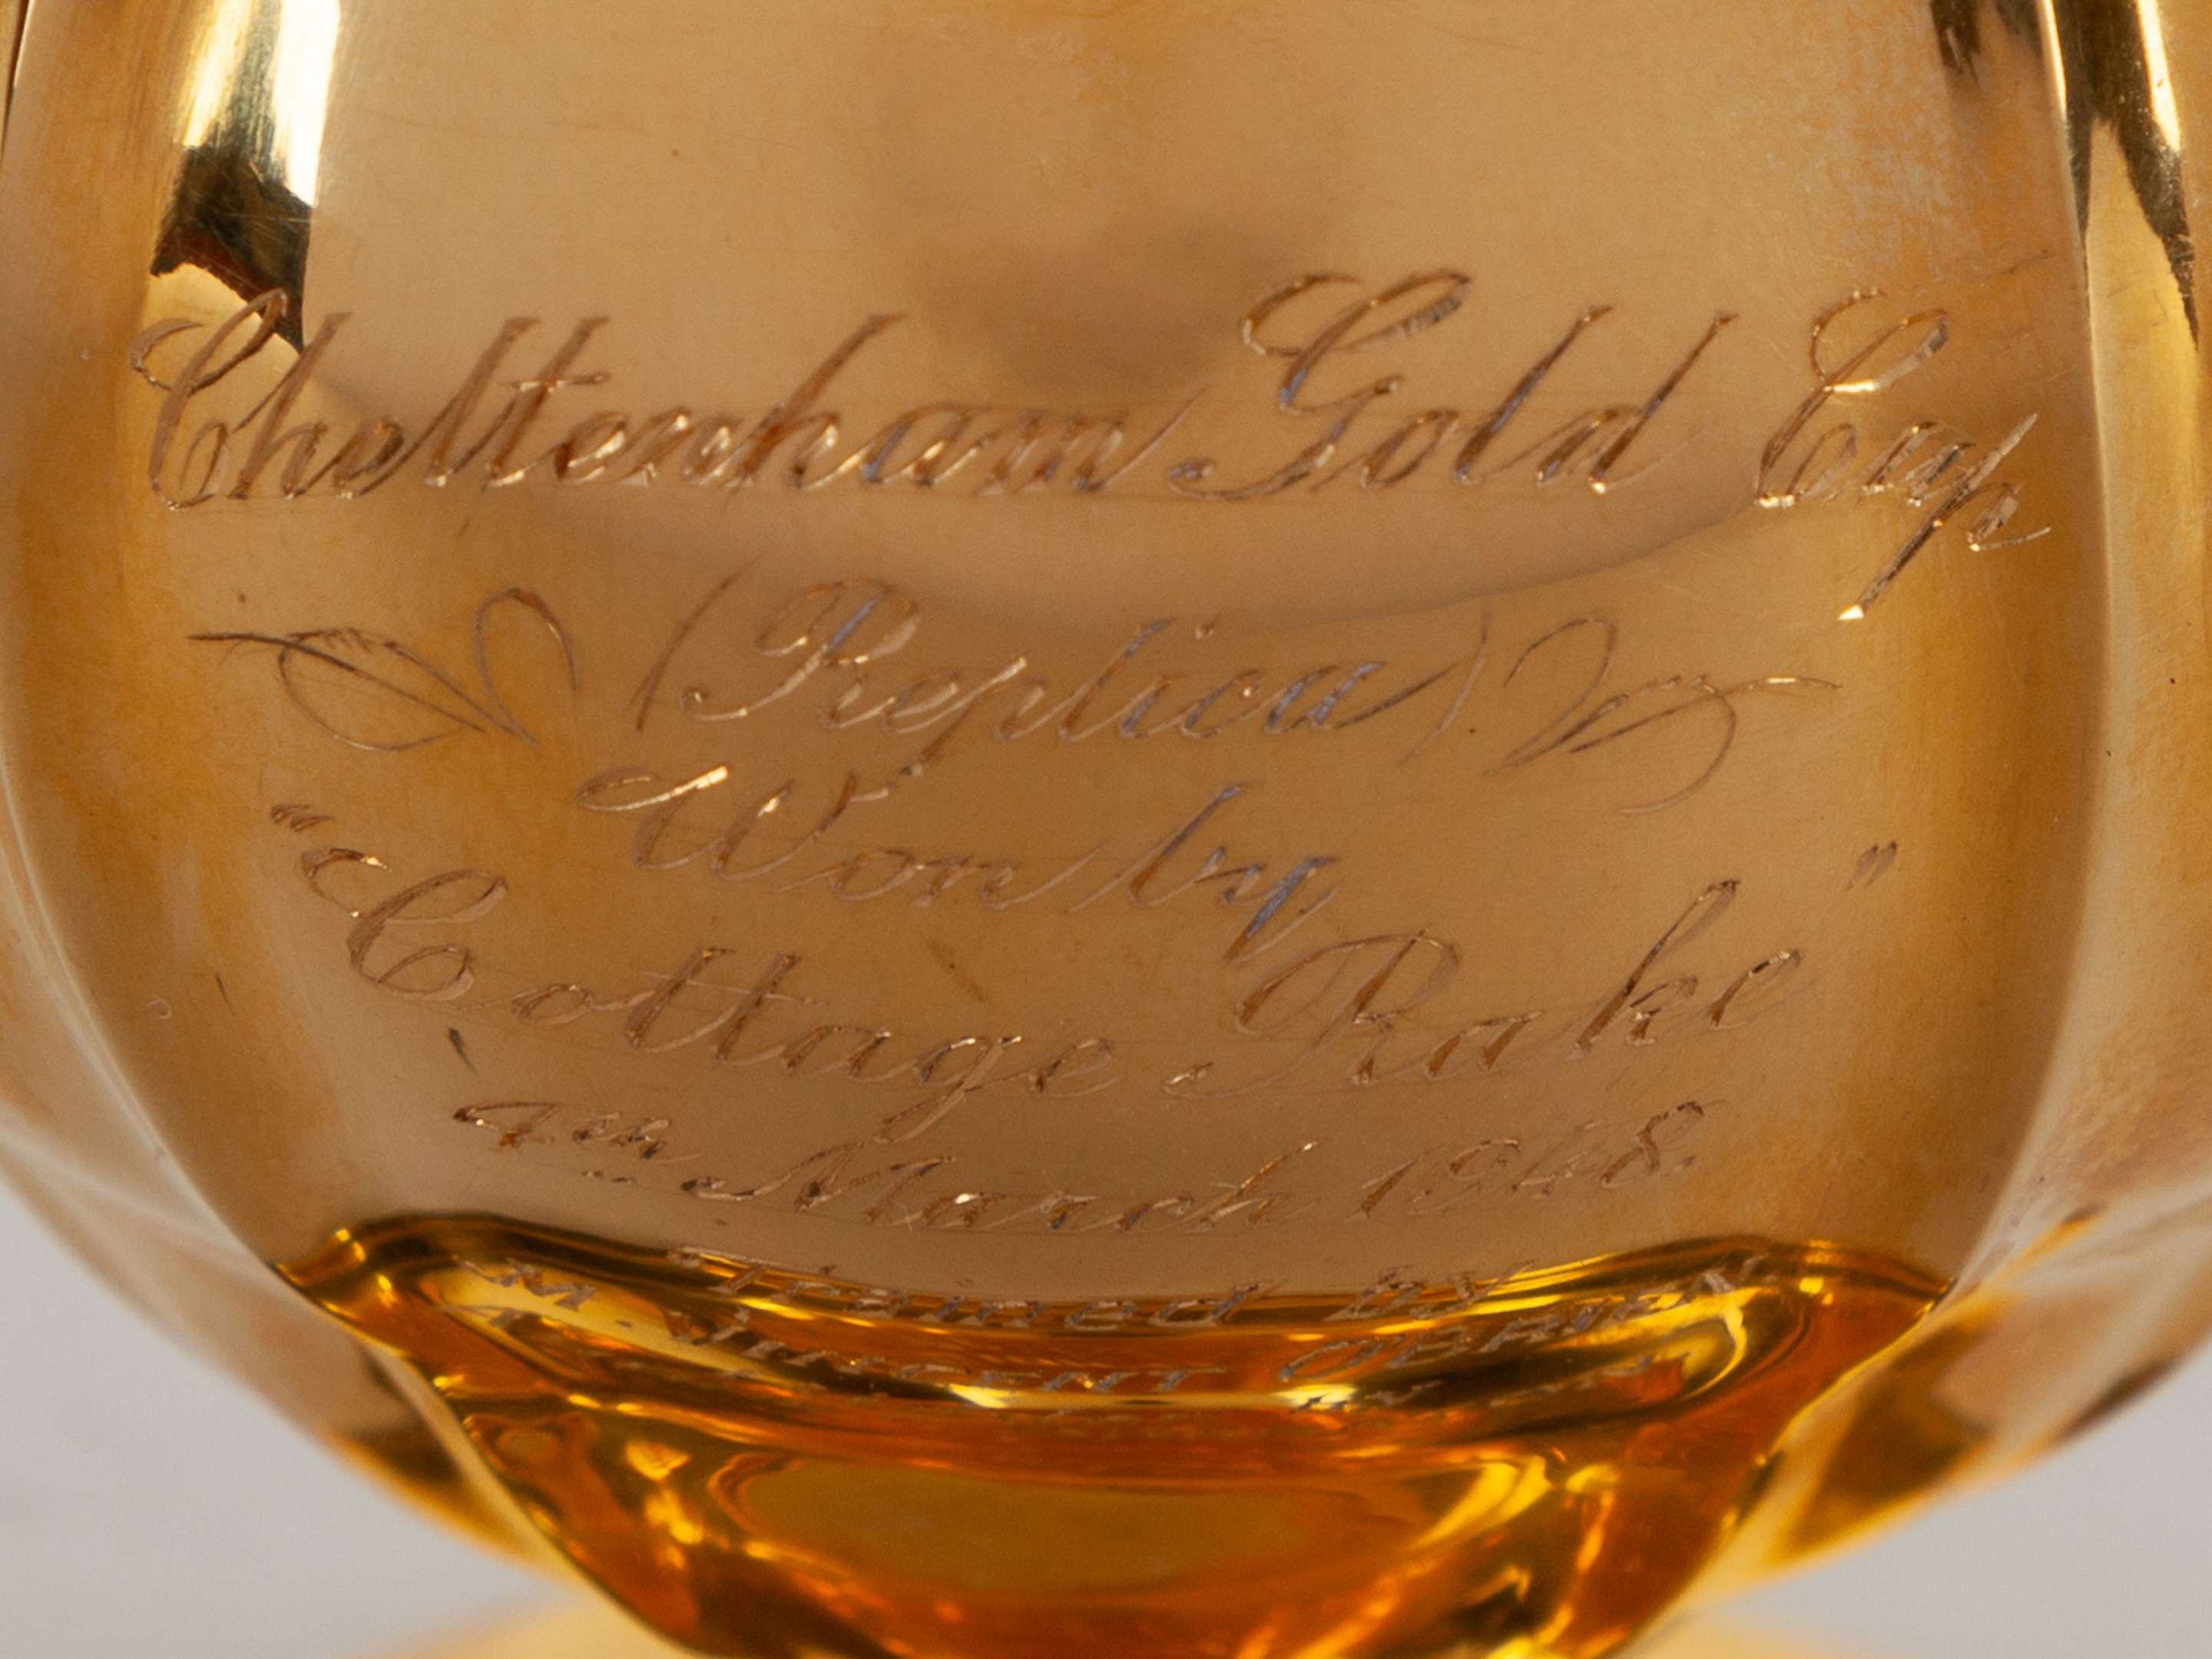 Cheltenham Gold Cup
(Replica)
Won by
"Cottage Rake"
4th March 1948.
Trained by
M. VINCENT O'BRIEN